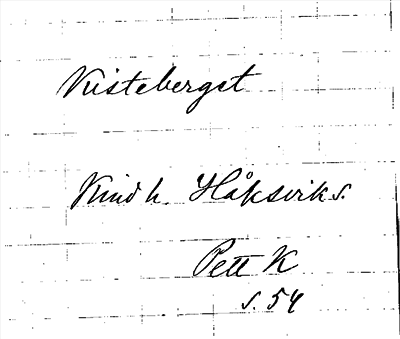 Visteberget
Kind h. Håksviks s.
Pett K
s. 54